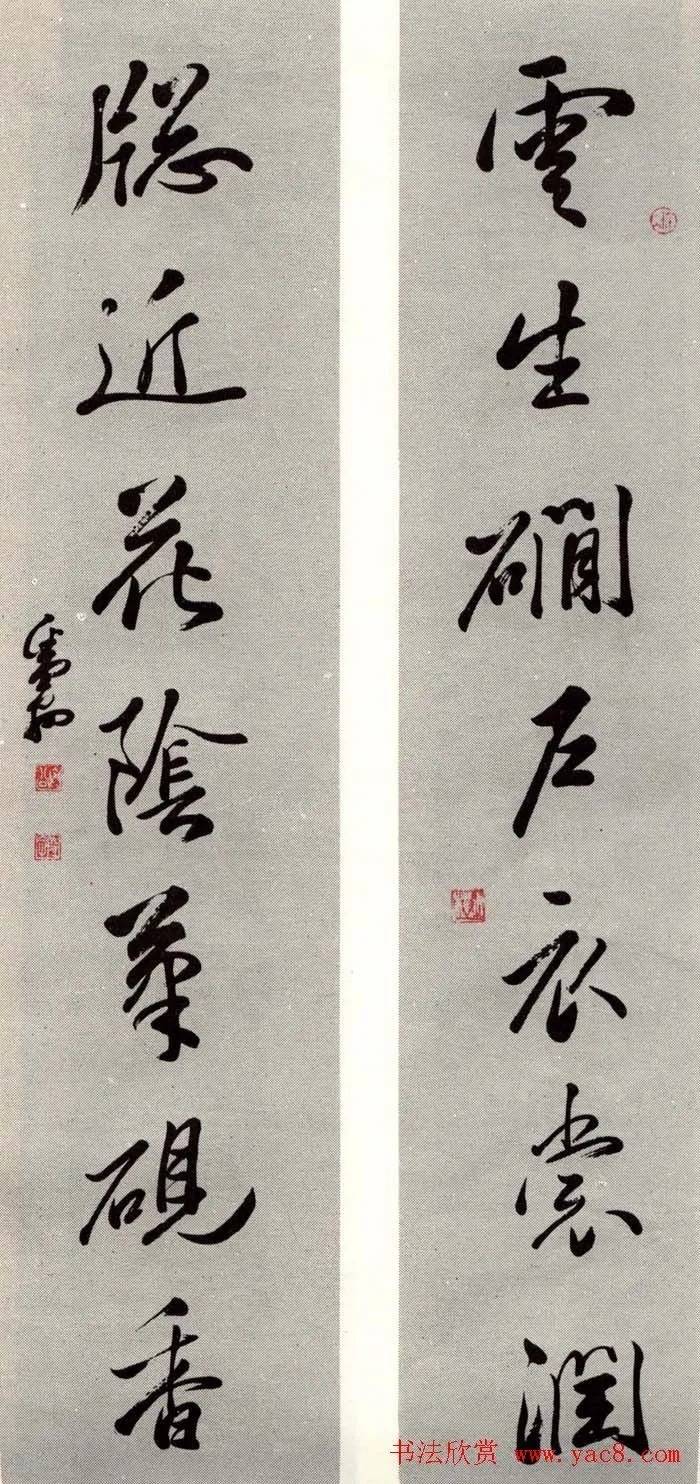 雲生磵戶衣裳潤
牕近花陰筆硯香
书法欣赏 www.yac8.com